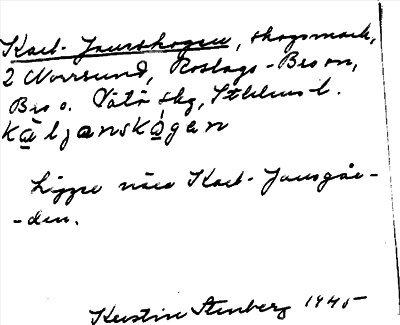 Karl-Jansskogen, skogsmark,
2 Norrsund, Roslags-Bro sn,
Bro o. Vätö skg, Sthlms l.
kàljanskógen
Ligger nära Karl-Jansgår-
-den.
Kerstin Stenberg 1945